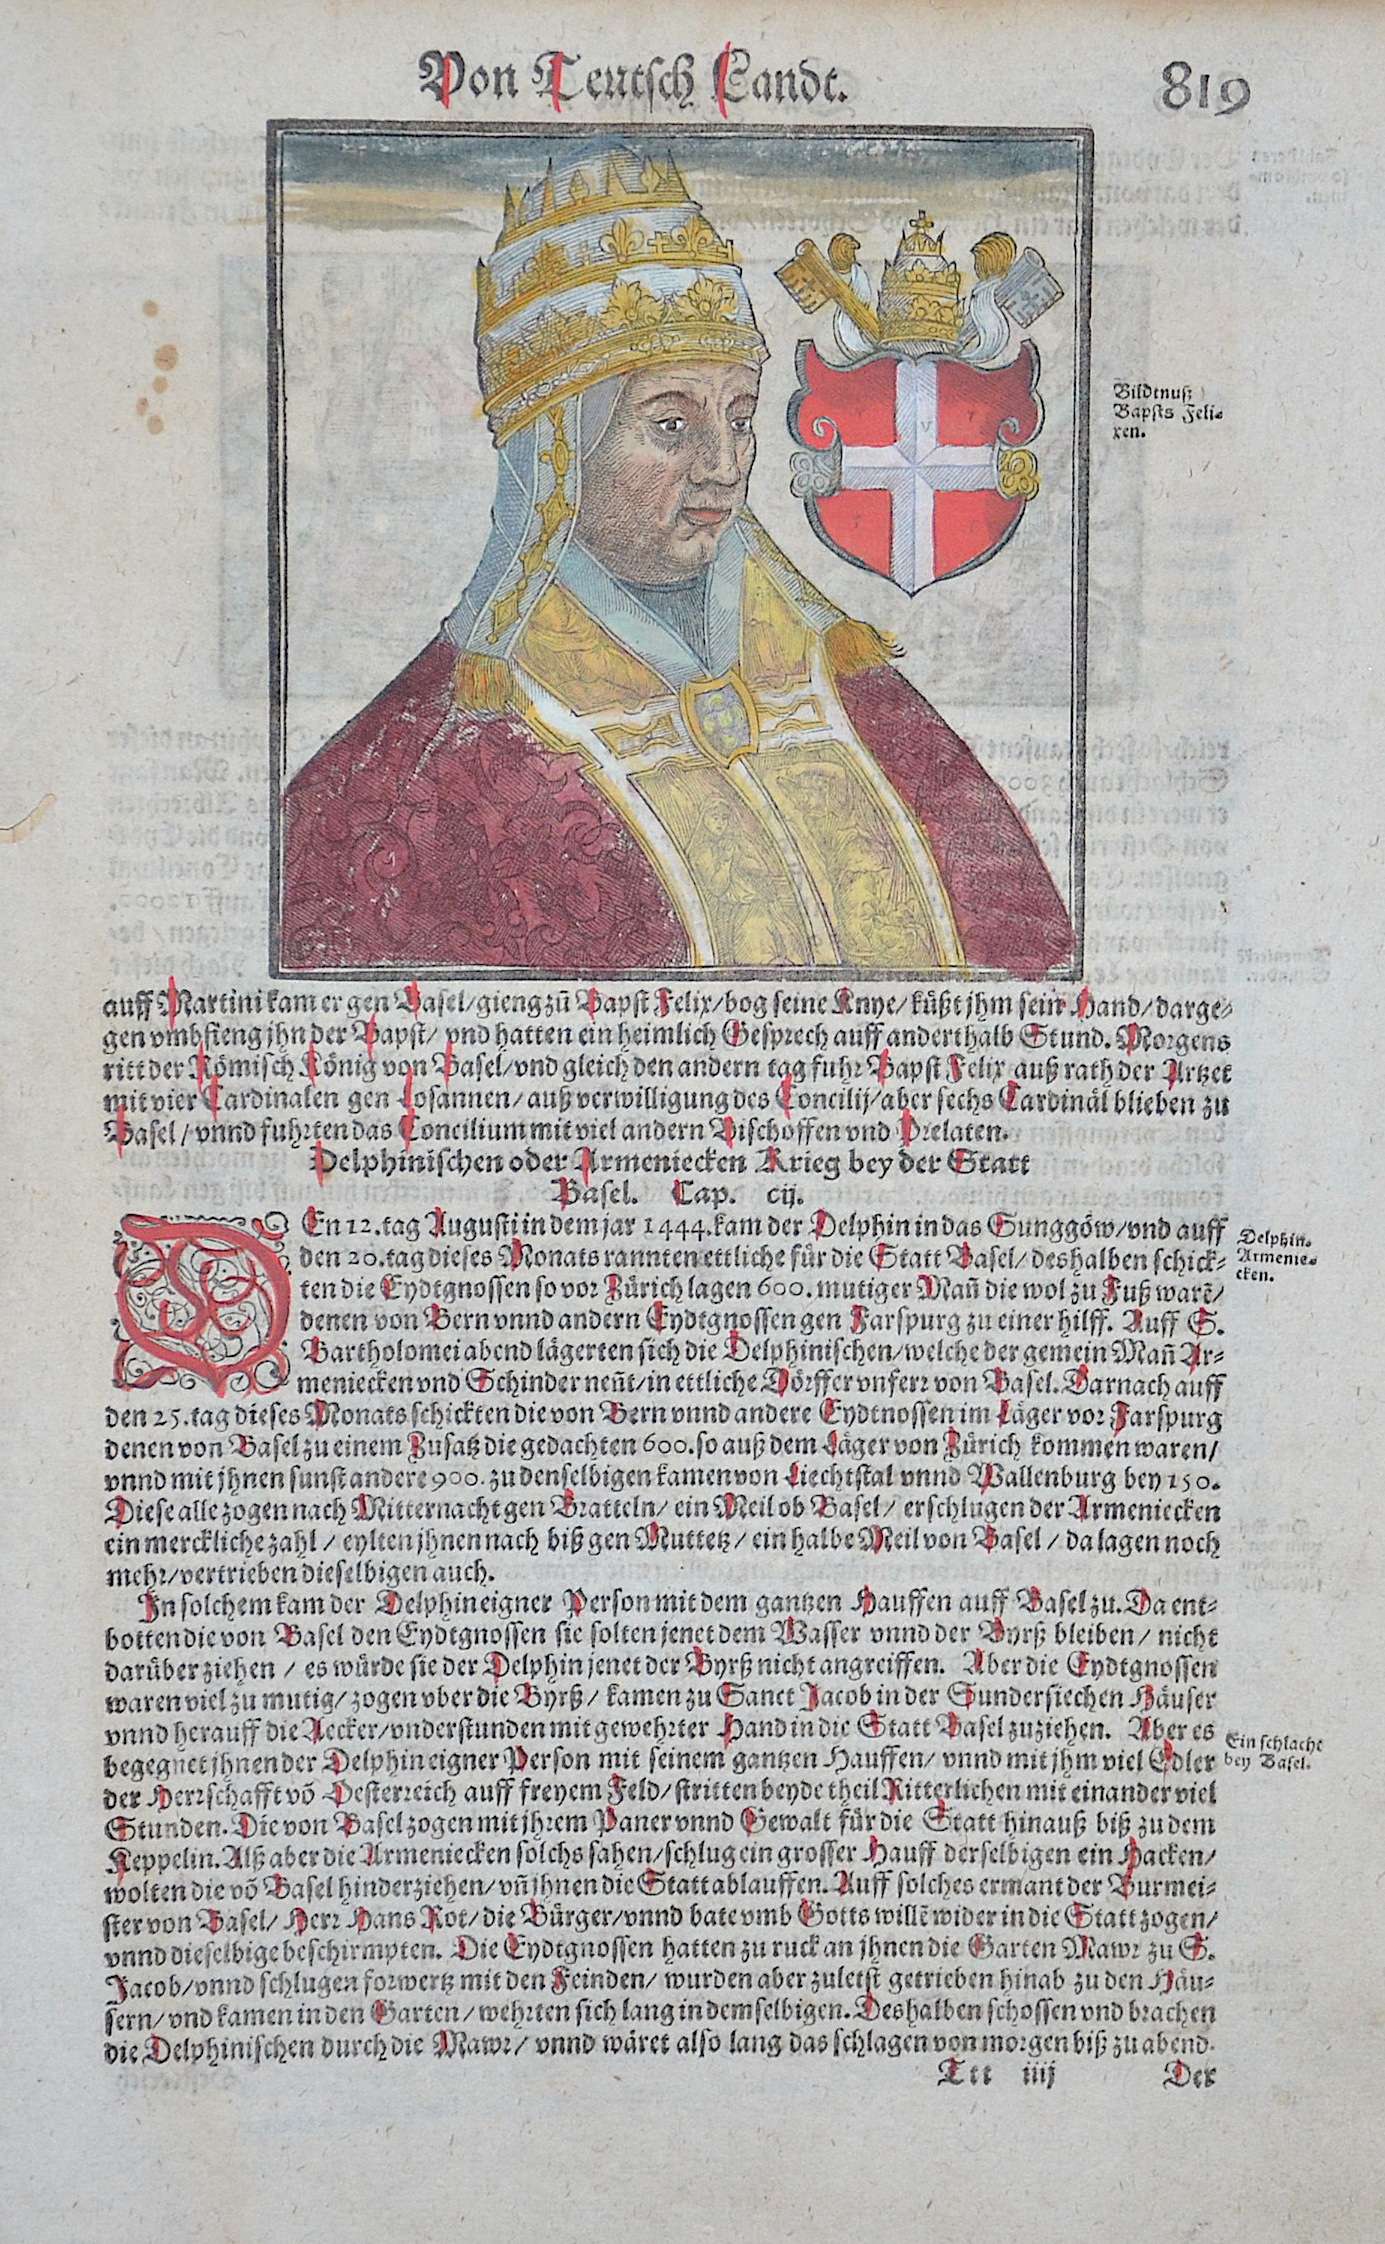 Von Teutsch Landt.
819
Bildtnuß
Bapsts Feli⸗
xen.
auff Martini kam er gen Basel/gieng zū Bapst Felix/bog seine Knye/küßt jhm sein Hand/darge⸗
gen vmbfieng jhn der Bapst/ vnd hatten ein heimlich Gesprech auff anderthalb Stund. Morgens
ritt der Römisch König von Basel/vnd gleich den andern tag fuhr Bapst Felix auß rath der Artzet
mit vier Cardinalen gen Losannen/auß verwilligung des Concilij/aber sechs Cardinäl blieben zu
Basel/vnnd fuhrten das Concilium mit viel andern Bischoffen vnd Prelaten.
Delphinischen oder Armeniecken Krieg bey der Statt
Basel. Cap. cij.
DEn 12.tag Augusti in dem jar 1444.kam der Delphin in das Sunggöw/vnd auff
den 20.tag dieses Monats rannten ettliche für die Statt Basel/deshalben schick⸗
ten die Eydtgnossen so vor Zürich lagen 600.mutiger Mañ die wol zu Fuß warē/
denen von Bern vnnd andern Eydtgnossen gen Farspurg zu einer hilff. Auff S.
Bartholomei abend lägerten sich die Delphinischen/welche der gemein Mañ Ar⸗
meniecken vnd Schinder neñt/in ettliche Dörffer vnferr von Basel. Darnach auff
den 25.tag dieses Monats schickten die von Bern vnnd andere Eydtnossen im Läger vor Farspurg
denen von Basel zu einem Zusatz die gedachten 600.so auß dem Läger von Zürich kommen waren/
vnnd mit jhnen sunst andere 900. zu denselbigen kamen von Liechtstal vnnd Wallenburg bey 150.
Diese alle zogen nach Mitternacht gen Bratteln/ ein Meil ob Basel/ erschlugen der Armeniecken
ein merckliche zahl/ eylten jhnen nach biß gen Muttetz/ ein halbe Meil von Basel/ da lagen noch
mehr/vertrieben dieselbigen auch.
In solchem kam der Delphin eigner Person mit dem gantzen Hauffen auff Basel zu. Da ent⸗
botten die von Basel den Eydtgnossen sie solten jenet dem Wasser vnnd der Byrß bleiben/ nicht
darüber ziehen/ es würde sie der Delphin jenet der Byrß nicht angreiffen. Aber die Eydtgnossen
waren viel zu mutig/ zogen vber die Byrß/ kamen zu Sanct Jacob in der Sundersiechen Häuser
vnnd herauff die Aecker/vnderstunden mit gewehrter Hand in die Statt Basel zuziehen. Aber es
begegnet jhnen der Delphin eigner Person mit seinem gantzen Hauffen/ vnnd mit jhm viel Edler
der Herrschafft vō Oesterreich auff freyem Feld/stritten beyde theil Ritterlichen mit einander viel
Stunden. Die von Basel zogen mit jhrem Paner vnnd Gewalt für die Statt hinauß biß zu dem
Keppelin. Alß aber die Armeniecken solchs sahen/schlug ein grosser Hauff derselbigen ein Hacken/
wolten die vō Basel hinderziehen/vñ jhnen die Statt ablauffen. Auff solches ermant der Burmei⸗
ster von Basel/ Herr Hans Rot/die Bürger/vnnd bate vmb Gotts willē wider in die Statt zogen/
vnnd dieselbige beschirmpten. Die Eydtgnossen hatten zu ruck an jhnen die Garten Mawr zu S.
Jacob/vnnd schlugen forwertz mit den Feinden/ wurden aber zuletst getrieben hinab zu den Häu⸗
sern/vnd kamen in den Garten/wehrten sich lang in demselbigen. Deshalben schossen vnd brachen
die Delphinischen durch die Mawr/ vnnd wäret also lang das schlagen von morgen biß zu abend.
Delphin.
Armenie⸗
cken.
Ein schlacht
bey Basel.
Ttt iiij
Der